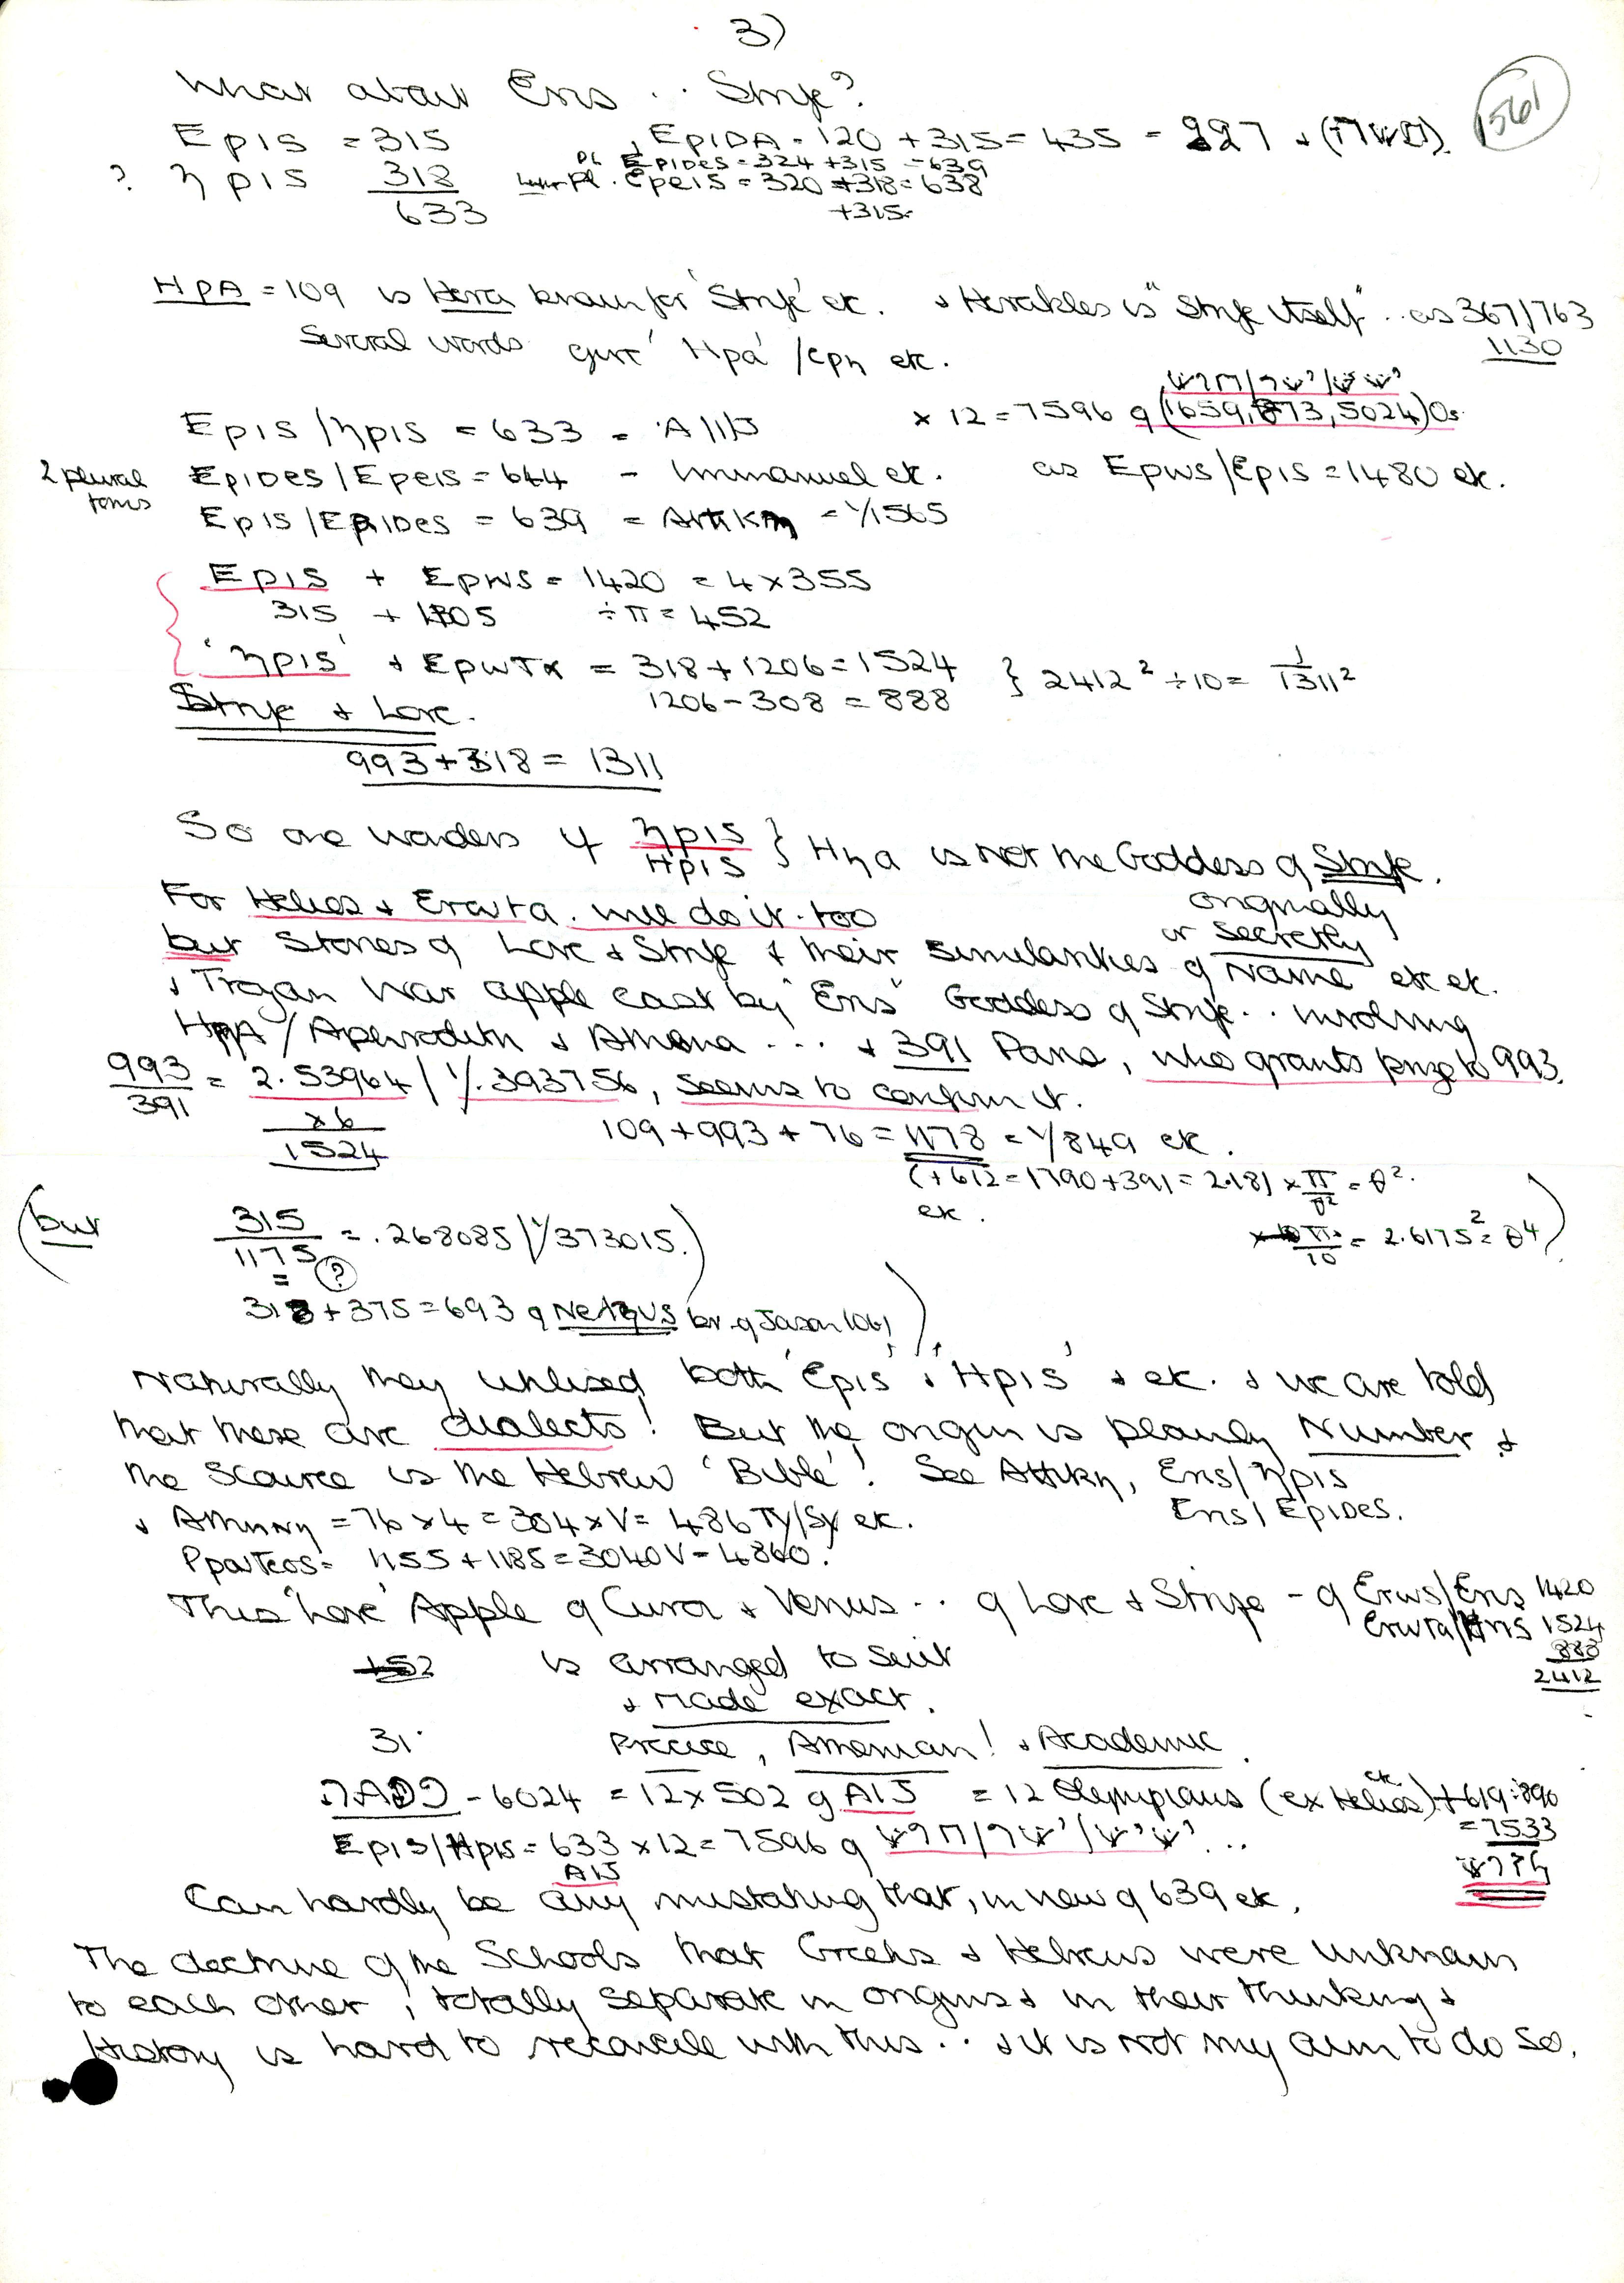 3)
561
What about Eris .. Strife?
Epis = 315
, EpIDA - 120 + 315 = 435 -
? ηpis 318
633
Pl Epides = 324 + 315 = 639
Pl. Epeis = 320 + 318 = 638
+315.
HpA = 109 is Hera known for 'Strife' etc. & Herakles is "Strife itself" .. as 367/763
1130
Several words give 'Hpa' /epη etc.
Epis /ηpis = 633 =
x 12 = 7596 of (1659, 873, 5024)Os.
2 plural forms
Epides / Epeis = 644 - Immanuel etc. as Epws/Epis = 1480 etc.
Epis / Epides = 639 = Attikη = 1/1565
Epis + Epws = 1420 = 4 x 355
315 + 1105 ÷ π = 452
'ηpis' + Epwτα = 318 + 1206 = 1524
1206 - 308 = 888
} 2412² ÷ 10 = 1/1311²
Strife & Love.
993 + 318 = 1311
So one wonders if ηpis / Hpis } Hηa is not the Goddess of Strife.
originally
or secretly
For Helios & Erwta. will do it. too
but Stories of Love & Strife & their similarities of Name etc etc.
& Trojan War apple cast by "Eris" Goddess of Strife .. involving
HpA / Aphrodith & Athena ... & 391 Paris, who grants prize to 993.
993/391 = 2.53964 | 1/.393756, seems to confirm it.
x 6
1524
109 + 993 + 76 = 1178 = 1/849 etc.
(+612 = 1790 + 391 = 2181 x π/θ² = θ².
etc.
π/10 = 2.6175² = θ⁴)
(but 315/1175 = .268085 | 1/373015.)
= (?)
318 + 375 = 693 of br. of Jason 1061)
Naturally they utilised both 'Epis' & 'Hpis' & etc. & we are told
that these are dialects! But the origin is plainly Number &
the source is the Hebrew 'Bible'! See Attikη, Eris/ηpis
Eris/Epides.
& = 76 x 4 = 304 x V = 486 Ty/Sy etc.
1155 + 1185 = 3040 V = 4860.
This 'Love' Apple of & Venus .. of Love & Strife - of Erws/Eris 1420
Erwta/Hris 1524
888
2412
152 is arranged to suit
& made exact.
31. Precise, Athenian! & Academic.
- 6024 = 12 x 502 of = 12 Olympians (ex Helios) etc + 619.890
= 7533
Epis/Hpis = 633 x 12 = 7596 of
Can hardly be any mistaking that, in view of 639 etc.
The doctrine of the Schools that Greeks & Hebrews were unknown
to each other, totally separate in origins & in their thinking &
History is hard to reconcile with this .. & it is not my aim to do so.